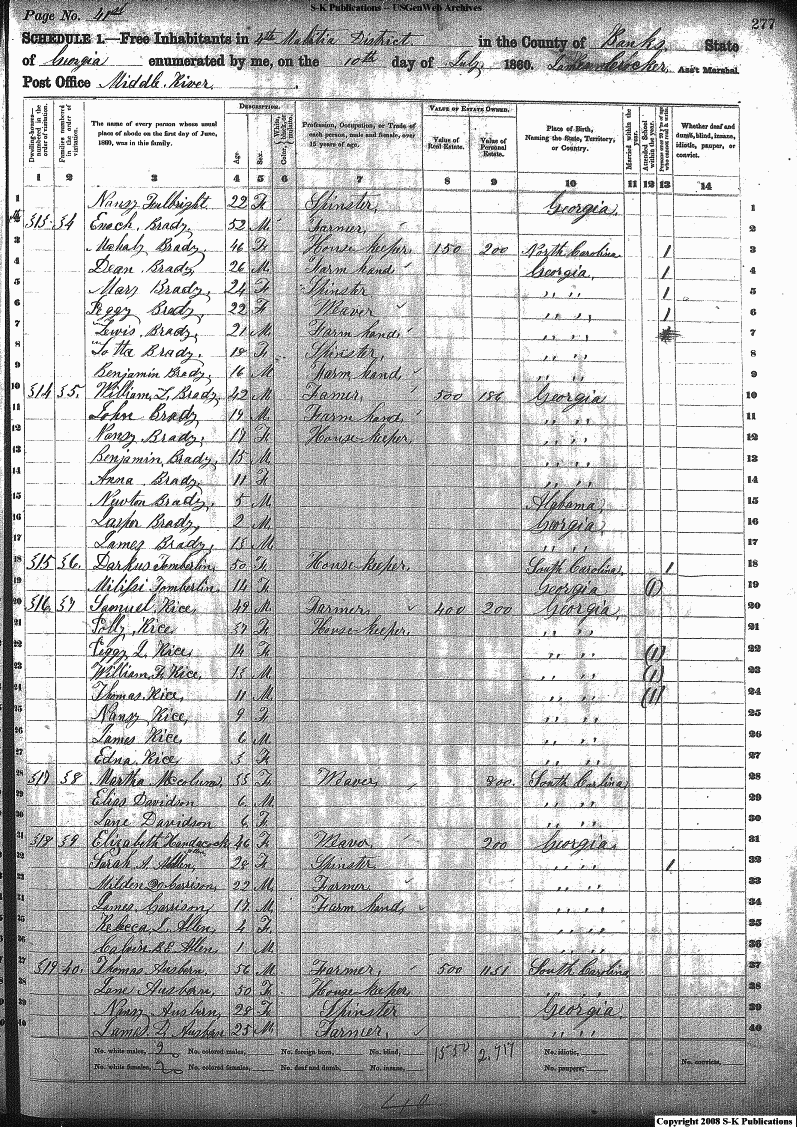 S-K Publications -- USGenWeb Archives
Page No. 41st
277
SCHEDULE 1.—Free Inhabitants in 4th Malitia District in the County of Banks State
of Georgia enumerated by me, on the 10th day of July 1860. Crocker, Ass't Marshal.
Post Office Middle River.
Dwelling-houses—numbered in the order of visitation.
Families numbered in the order of visitation.
The name of every person whose usual place of abode on the first day of June, 1860, was in this family.
DESCRIPTION.
Age.
Sex.
Color, White, black, or mulatto.
Profession, Occupation, or Trade of each person, male and female, over 15 years of age.
VALUE OF ESTATE OWNED.
Value of Real Estate.
Value of Personal Estate.
Place of Birth, Naming the State, Territory, or Country.
Married within the year.
Attended School within the year.
Persons over 20 y'rs of age who cannot read & write.
Whether deaf and dumb, blind, insane, idiotic, pauper, or convict.
1 2 3 4 5 6 7 8 9 10 11 12 13 14
1 Nansy Fulbright 22 F. Spinster, Georgia, 1
2 313 34 Enoch Brady, 52 M Farmer, 2
3 Mahaly Brady, 46 F. House keeper, 150 200 North Carolina 1 3
4 Dean Brady, 26 M. Farm hand Georgia, 1 4
5 Mary Brady, 24 F. Spinster ,, ,, 1 5
6 Peggy Brady, 22 F. Weaver ,, ,, 1 6
7 Lewis Brady, 21 M. Farm hand ,, ,, 7
8 Brady. 18 F. Spinster, ,, ,, 8
9 Benjamin Brady, 16 M Farm hand ,, ,, 9
10 314 35. William L. Brady, 42 M. Famer, 500 186 Georgia 10
11 John Brady 19 M. Farm hand ,, ,, 11
12 Nansy Brady, 17 F. House keeper, ,, ,, 12
13 Benjamin Brady, 15 M. ,, ,, 13
14 Anna Brady, 11 F. ,, ,, 14
15 Newton Brady, 5 M. Alabama, 15
16 Brady, 2 M. Georgia, 16
17 James Brady, 13 M ,, ,, 17
18 315 36. Darkus Tomberlin, 50 F. House keeper, South Carolina, 1 18
19 Tomberlin, 14 F. Georgia (1) 19
20 316 37 Samuel Rice, 49 M. Farmer, 400 200 Georgia, 20
21 Polly Rice, 37 F. House keeper, ,, ,, 21
22 Peggy L. Rice, 14 F. ,, ,, (1) 22
23 William F. Rice, 13 M. ,, ,, (1) 23
24 Thomas Rice, 11 M. ,, ,, (1) 24
25 Nansy Rice, 9 F. ,, ,, 25
26 James Rice, 6 M. ,, ,, 26
27 Edna Rice, 3 F. ,, ,, 27
28 317 38 Martha Mccolum, 55 F. Weaver, 200. South Carlina, 28
29 Elias Davidson 6 M. ,, ,, 29
30 Jane Davidson 6 F. ,, ,, 30
31 318 39 Elizabeth Handacook 46 F. Weaver 200 Georgia, 31
32 Sarah A. Allen, 28 F. Spinster ,, ,, 1 32
33 Garrison, 22 M. Farmer ,, ,, 33
34 James Garrison, 17 M. Farm hand, ,, ,, 34
35 Rebeca L. Allen, 4 F. ,, ,, 35
36 Calvin B.E. Allen, 1 M. ,, ,, 36
37 319 40. Thomas Ausbern, 56 M. Farmer, 500 1151 South Carolina, 37
38 Jane Ausbarn, 50 F. House keeper 38
39 Nansy Ausburn, 28 F. Spinster Georgia, 39
40 James Ausban 25 M. Farmer, ,, ,, 40
No. white males, 9 No. colored males, No. foreign born, No. blind, 1550 2,717 No. idiotic,
No. white females, No. colored females, No. deaf and dumb, No. insane, No. paupers, No. convicts,
Copyright 2008 S-K Publications